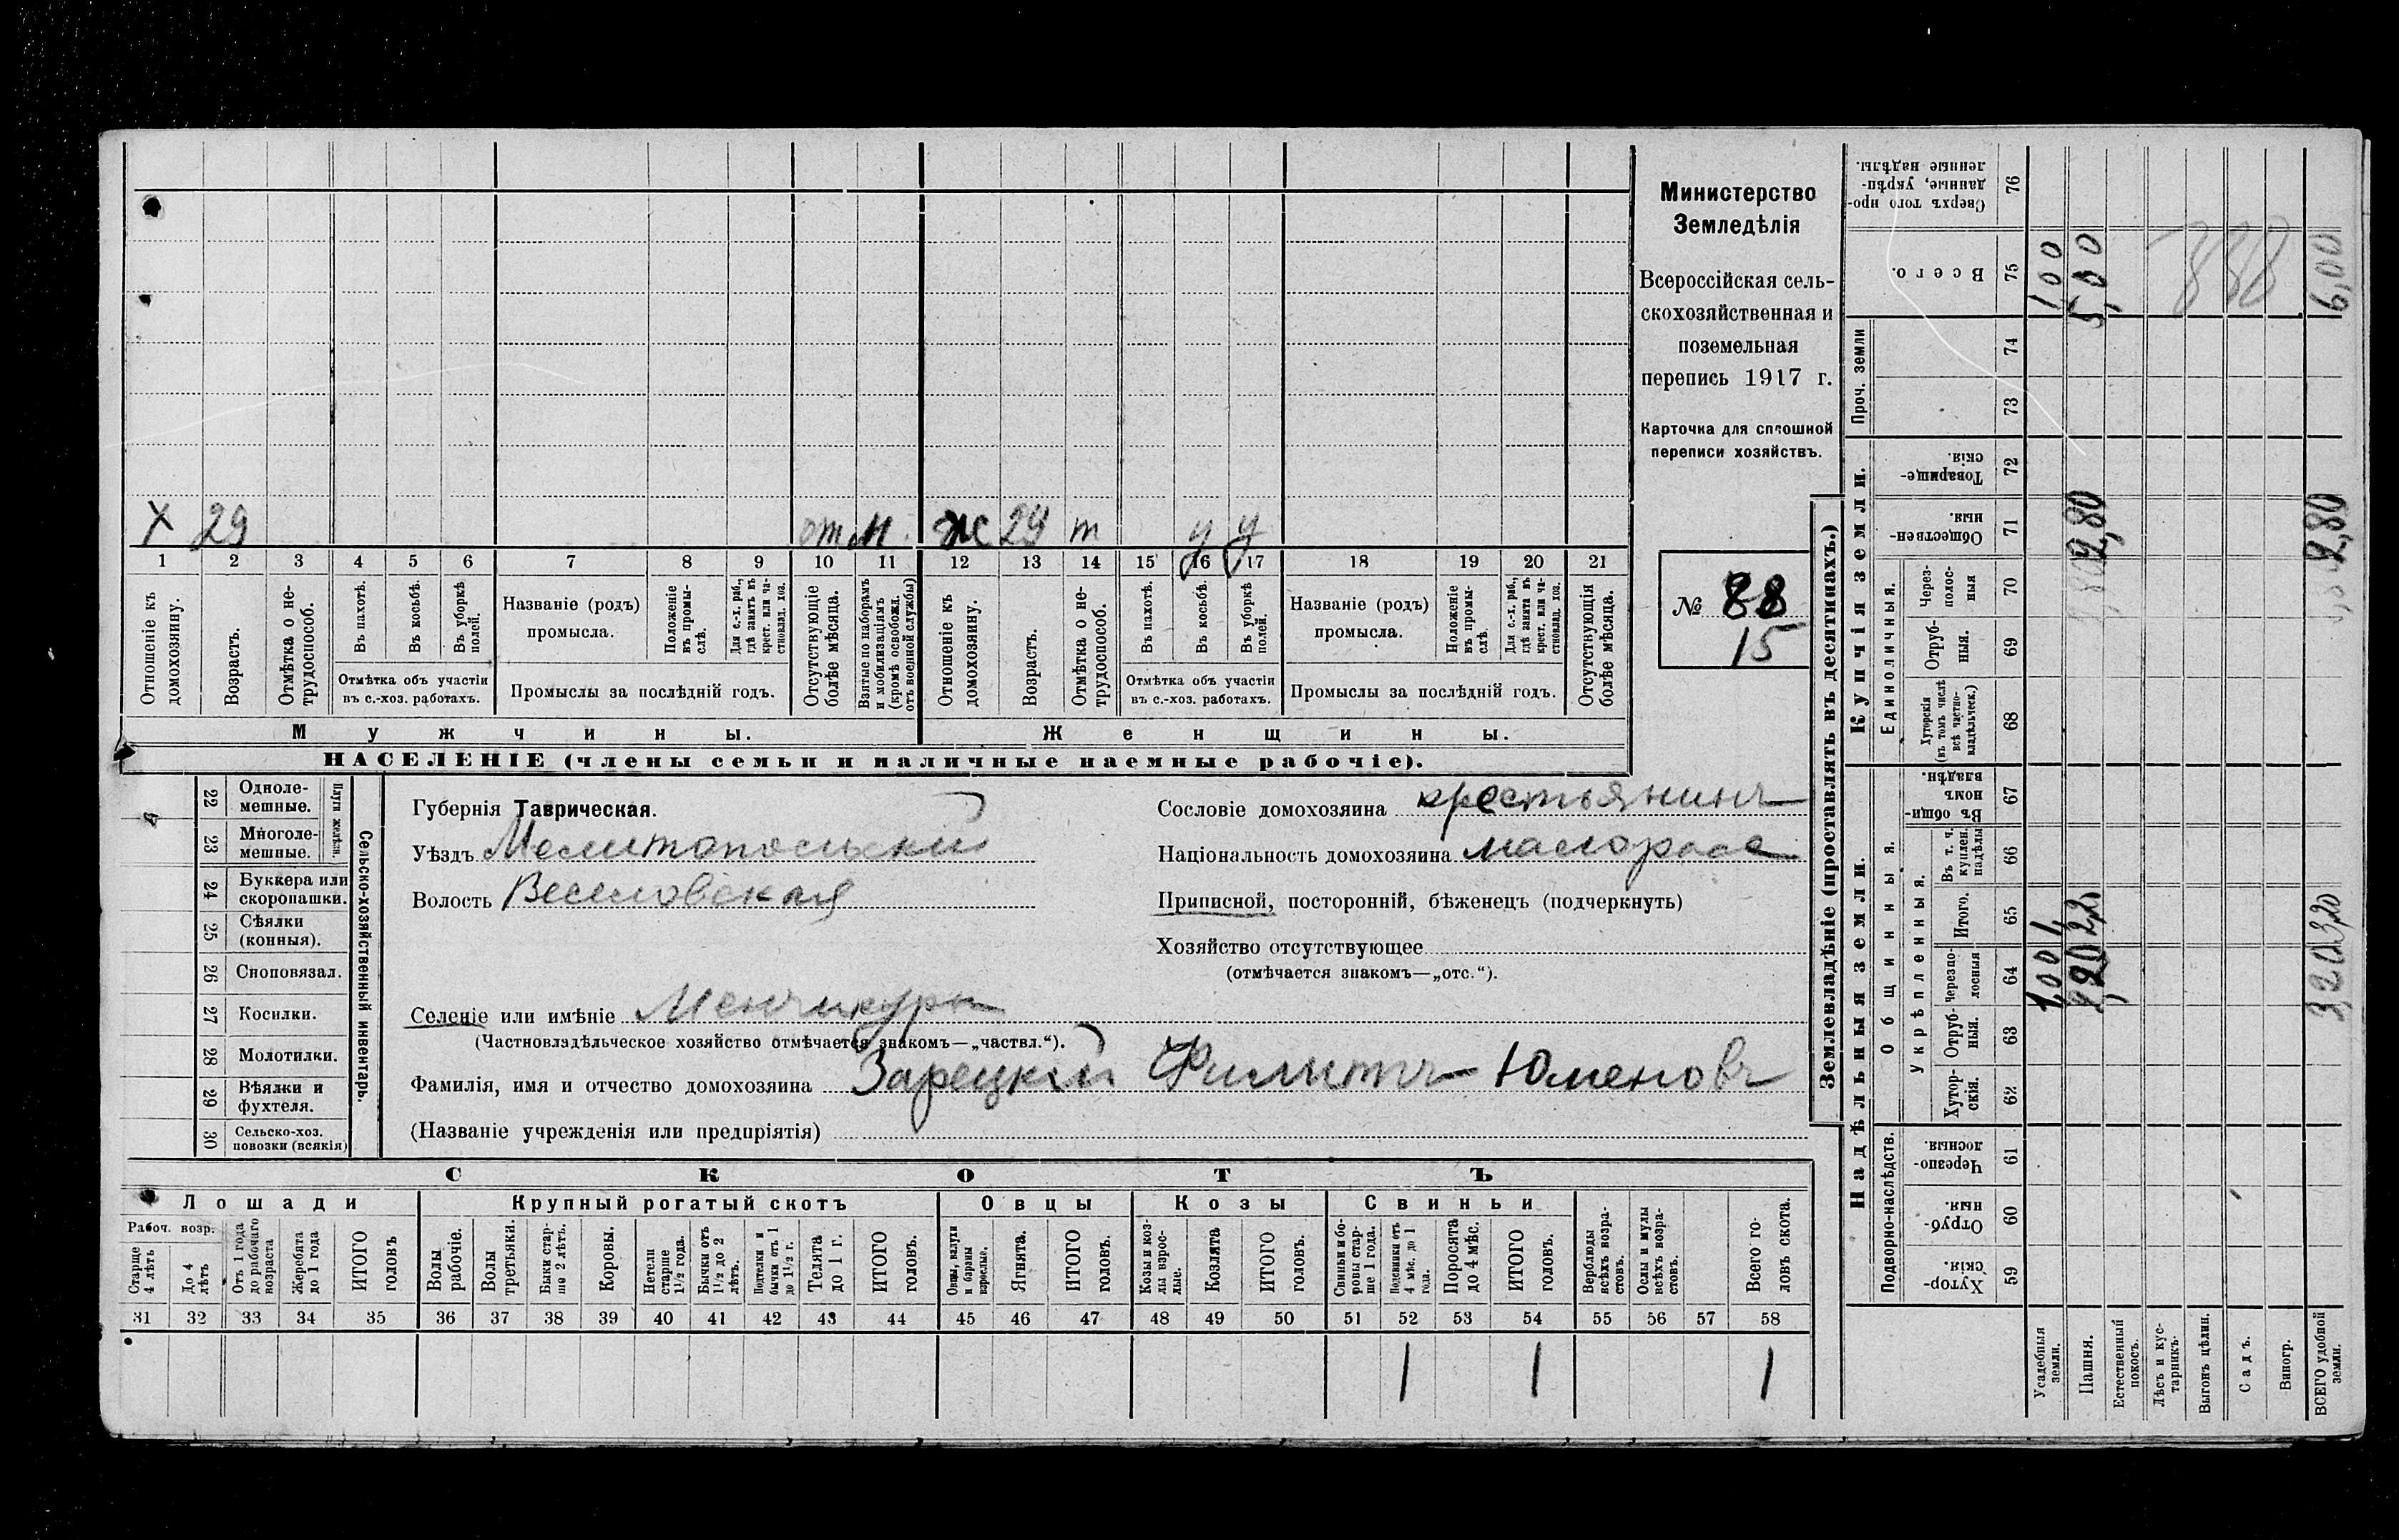 Министерство
Земледѣлія
Всероссійская сель-
скохозяйственная и
поземельная
перепись 1917 г.
Карточка для сплошной
переписи хозяйствъ.
№ 88
15
Х 29 от м. ж 29 т у у
1 2 3 4 5 6 7 8 9 10 11 12 13 14 15 16 17 18 19 20 21
Отношеніе къ домохозяину.
Возрастъ.
Отмѣтка о не-трудоспособ.
Въ пахотѣ.
Въ косьбѣ.
Въ уборкѣ полей.
Отмѣтка объ участіи
въ с.-хоз. работахъ.
Названіе (родъ)
промысла.
Положеніе въ промы-слѣ.
Для с.-х. раб., гдѣ занятъ въ крест. или ча-стновлад. хоз.
Промыслы за послѣдній годъ.
Отсутствующіе болѣе мѣсяца.
Взятые по наборамъ и мобилизаціямъ (кромѣ освобожд. отъ военной службы)
Отношеніе къ домохозяину.
Возрастъ.
Отмѣтка о не-трудоспособ.
Въ пахотѣ.
Въ косьбѣ.
Въ уборкѣ полей.
Отмѣтка объ участіи
въ с.-хоз. работахъ.
Названіе (родъ)
промысла.
Положеніе въ промы-слѣ.
Для с.-х. раб., гдѣ занята въ крест. или ча-стновлад. хоз.
Промыслы за послѣдній годъ.
Отсутствующія болѣе мѣсяца.
Мужчины. Женщины.
НАСЕЛЕНІЕ (члены семьи и наличные наемные рабочіе).
22 Одноле-мешные.
23 Многоле-мешные.
Плуги желѣзн.
24 Буккера или скоропашки.
25 Сѣялки (конныя).
26 Сноповязал.
27 Косилки.
28 Молотилки.
29 Вѣялки и фухтеля.
30 Сельско-хоз. повозки (всякія)
Сельско-хозяйственный инвентарь.
Губернія Таврическая.
Уѣздъ Мелитопольский
Волость Веселовская
Сословіе домохозяина крестьянинъ
Національность домохозяина малоросс
Приписной, посторонній, бѣженецъ (подчеркнуть)
Хозяйство отсутствующее
(отмѣчается знакомъ—„отс.“).
Селеніе или имѣніе Менчикуры
(Частновладѣльческое хозяйство отмѣчается знакомъ—„частвл.“).
Фамилія, имя и отчество домохозяина Зарецкий Филиппъ Юменовъ
(Названіе учрежденія или предпріятія)
СКОТЪ
Лошади Крупный рогатый скотъ Овцы Козы Свиньи
Рабоч. возр.
Старше 4 лѣтъ
До 4 лѣтъ
Отъ 1 года до рабочаго возраста
Жеребята до 1 года
ИТОГО головъ
Волы рабочіе.
Волы третьяки.
Быки стар-ше 2 лѣтъ.
Коровы.
Нетели старше 1½ года.
Бычки отъ 1½ до 2 лѣтъ.
Подтелки и бычки отъ 1 до 1½ г.
Телята до 1 г.
ИТОГО головъ.
Овцы, валухи и бараны взрослые.
Ягнята.
ИТОГО головъ.
Козы и коз-лы взрос-лые.
Козлята
ИТОГО головъ.
Свиньи и бо-ровы стар-ше 1 года.
Подсвинки отъ 4 мѣс. до 1 года.
Поросята до 4 мѣс.
ИТОГО головъ.
Верблюды всѣхъ возра-стовъ.
Ослы и мулы всѣхъ возра-стовъ.
Всего го-ловъ скота.
31 32 33 34 35 36 37 38 39 40 41 42 43 44 45 46 47 48 49 50 51 52 53 54 55 56 57 58
1 1 1
Землевладѣніе (проставлять въ десятинахъ.)
Сверхъ того про-данные, укрѣп-ленные надѣлы. 76
Всего. 75 1 00 5,00 6,00
888
Проч. земли
74
73
Купчія земли.
Товарище-скія. 72
Обществен-ныя. 71 2,80 2,80
Единоличныя.
Через-полос-ныя 70
Отруб-ныя. 69
Хуторскія (въ томъ числѣ всѣ частно-владѣльческ.) 68
Надѣльныя земли.
Общинныя.
Въ общи-номъ владѣн. 67
Укрѣпленныя.
Въ т. ч. куплен. надѣлы 66
Итого. 65
черезпо-лосныя 64
Отруб-ныя. 63
Хутор-скія. 62
Подворно-наслѣдств.
Черезпо-лосныя 61
Отруб-ныя 60
Хутор-скія. 59
Усадебныя земли.
Пашня.
Естественный покосъ.
Лѣсъ и кус-тарникъ.
Выгонъ цѣлин.
Садъ.
Виногр.
ВСЕГО удобной земли.